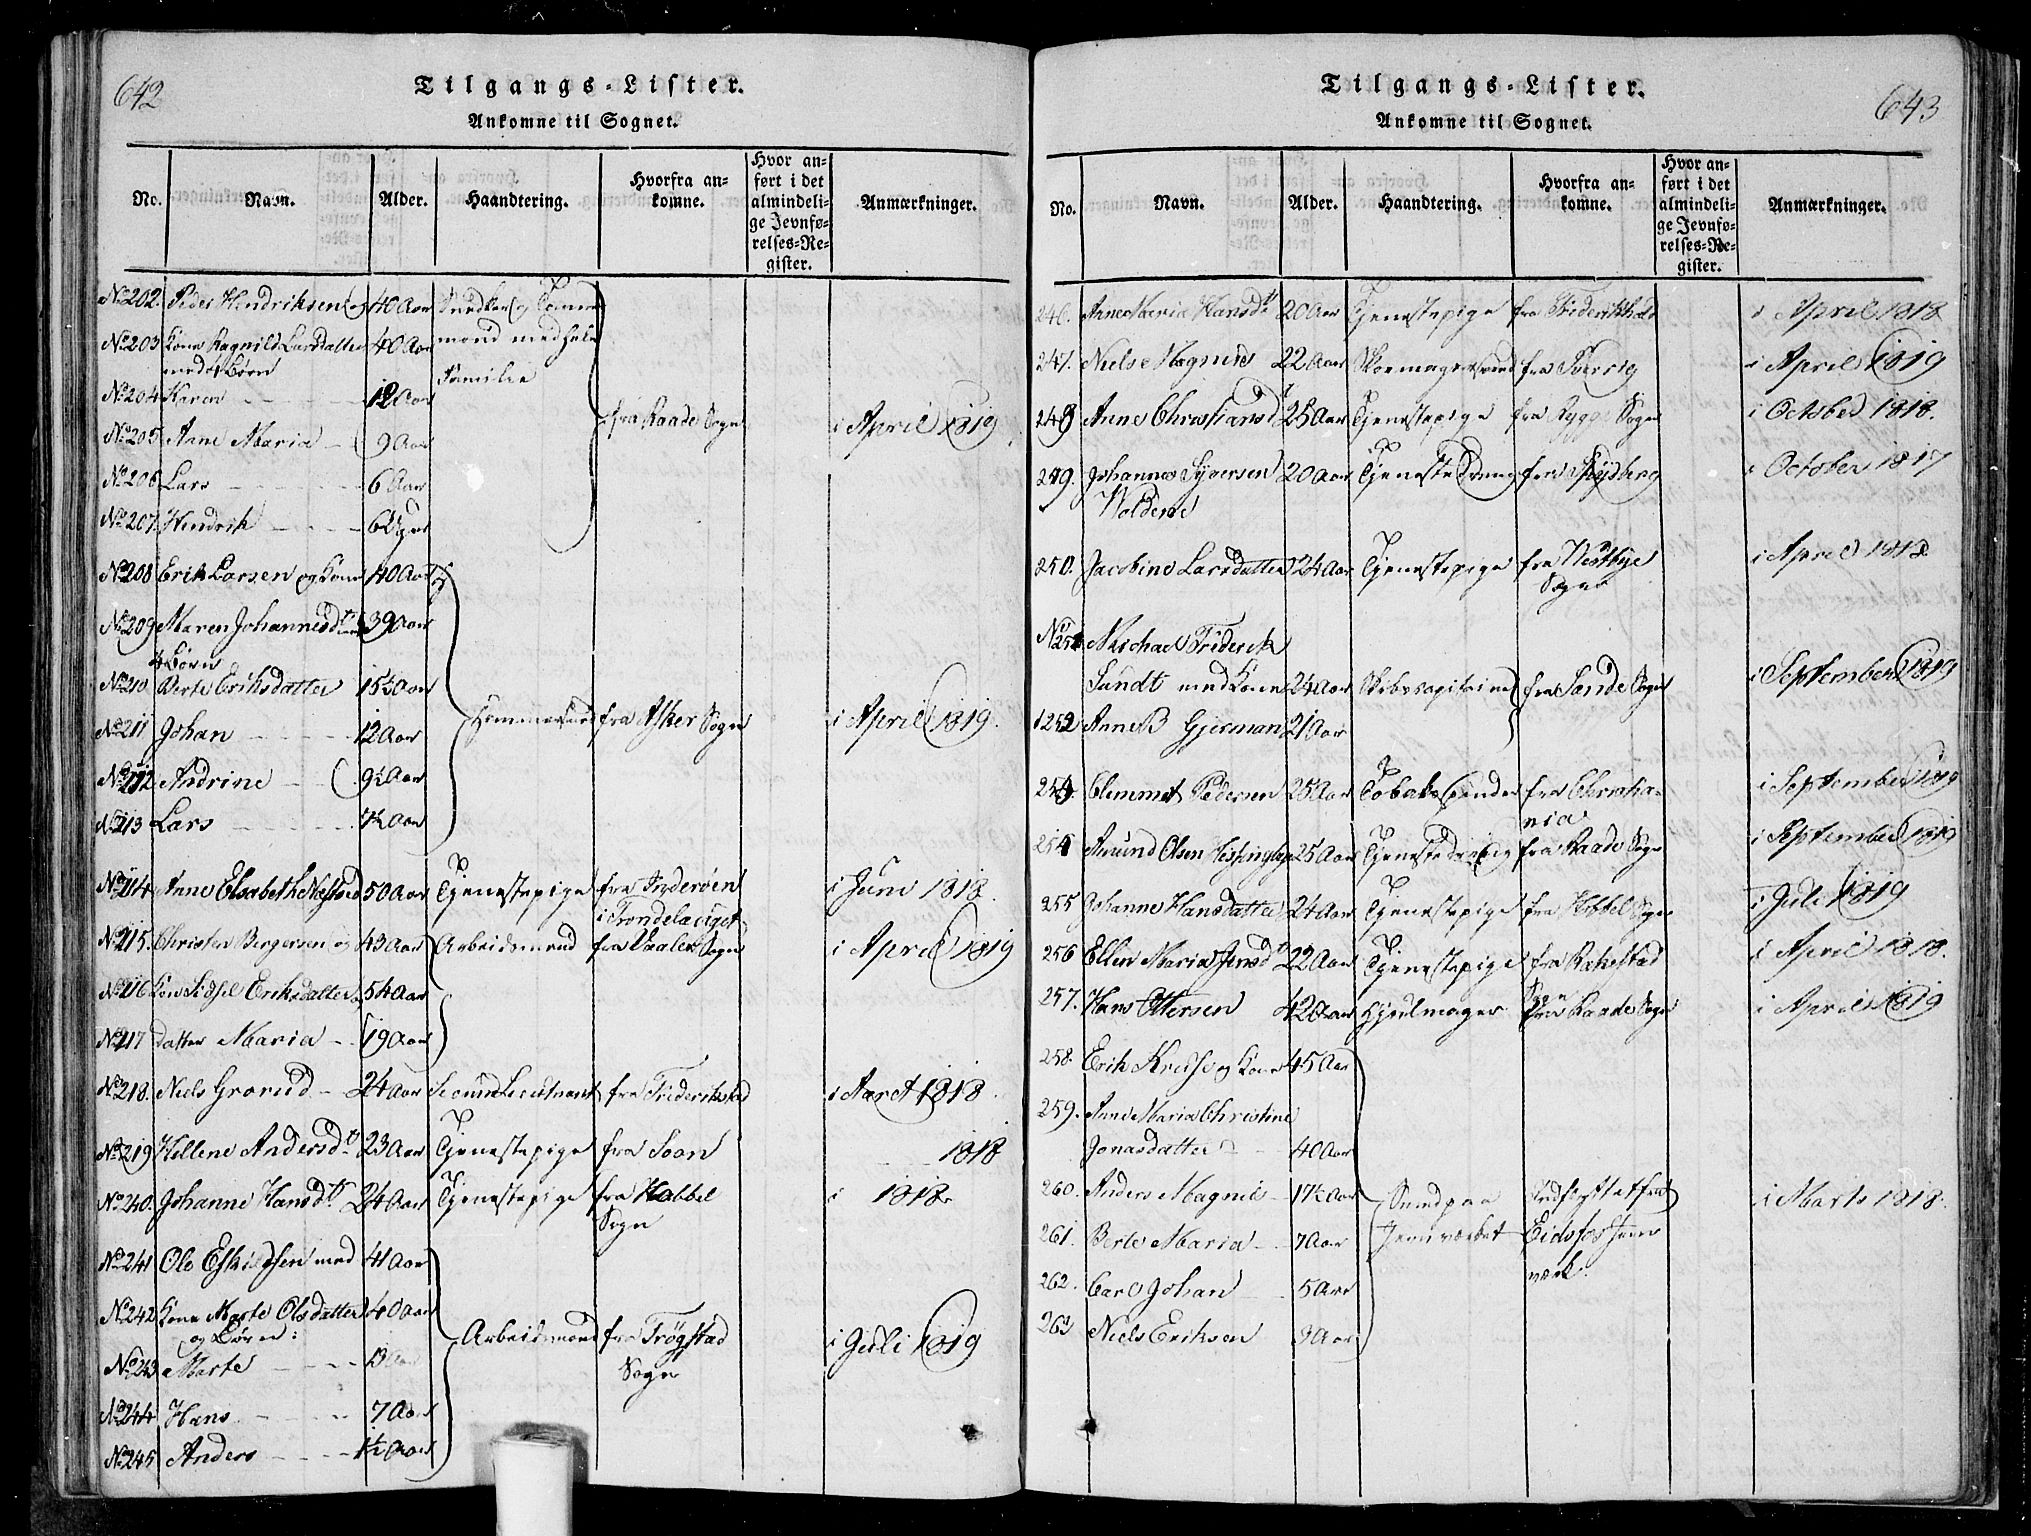 642
Tilgangs-Lister.
Ankomne til Sognet.
No. Navn. Alder. Haandtering. Hvorfra ankomne. Hvor anført i det almindelige Jevnførelses-Register. Anmærkninger.
No 202. Peder Hendriksen og 40 Aar
No 203 Kone Ragnild Larsdatter 40 Aar
med 4 Børn
Familie
No 204 Karen 12 Aar
No 205 Anne Maria 9 Aar fra Raade Sogn i April 1819
No 206 Lars 6 Aar
No 207 Hendrik 6 Uger
No 208 Erik Larsen og Kone 40 Aar
No 209 Maren Johannesdr 39 Aar
4 Børn
No 210 Berte Eriksdatter 15½ Aar
No 211 Johan 12 Aar fra Asker Sogn i April 1819.
No 212 Andrine 9½ Aar
No 213 Lars
No 214 Anne Elsabeth 50 Aar Tjenestepige fra Inderøen i Trondelaget i Juni 1818.
No 215. Christen Bergersen og 43 Aar Arbeidsmand fra Vaaler Sogn i April 1819
No 216 Kone Sidsel Eriksdatter 54 Aar
No 217 datter Maria 19 Aar
No 218. Niels Grorud 24 Aar Secund Lieutnant fra Frideriksstad i Aaret 1818.
No 219 Hellene Andersdr 23 Aar Tjenestepige fra Soon 1818
No 240. Johanne Hansdr. 24 Aar Tjenestepige fra Habbel Sogn i 1818.
No 241 Ole Eskildsen med 41 Aar
No 242 Kone Marte Olsdatter 40 Aar
og Børn: Arbeidsmand fra Trøgstad Sogn i Juli 1819
No 243 Marte 13 Aar
No 244 Hans 7 Aar
No 245 Anders 1½ Aar
643
Tilgangs-Lister.
Ankomne til Sognet.
No. Navn. Alder. Haandtering. Hvorfra ankomne. Hvor anført i det almindelige Jevnførelses-Register. Anmærkninger.
246. Anne Maria Hansdr 20 Aar Tjenestepige fra Friderikshald i April 1818
247. Niels Magnus 22 Aar Skomagersvend fra Sverrig i April 1819
248 Anne Christiansdr 25 Aar Tjenestepige fra Rygge Sogn i October 1818.
249. Johannes Syversen 20 Aar Tjenestedreng fra Spydberg i October 1817
Woldene
250. Jacobine Larsdatter 24 Aar Tjenestepige fra Westbye Sogn i April 1818
No 251 Michael Friderik
Sundt med Kone 24 Aar Skibscapitaine fra Sande Sogn i September 1819
252 Anne B Gjerman 21 Aar
253 Clemmet Pedersen 25 Aar Tobaks spinder fra Christiania i September 1819
254 Amund Olsen 25 Aar Tjenestedreng fra Raade Sogn i September 1819
255 Johanne Hansdatter 24 Aar Tjenestepige fra Hobbel Sogn i Juli 1819
256 Ellen Maria Jensdr 22 Aar Tjenestepige fra Rakestad Sogn i April 1818.
257. Hans Ottersen 42 Aar Hjulmager fra Raade Sogn i April 1819
258. Erik Kruse og Kone 45 Aar
259. Anne Maria Christine
Jonasdatter 40 Aar
260. Anders Magnus 17½ Aar Smed paa Indflyttet fra i Marts 1818.
261. Berte Maria 7 Aar Jernværket Eidsfos Jern
262. Carl Johan 5 Aar værk.
263 Niels Eriksen 3 Aar